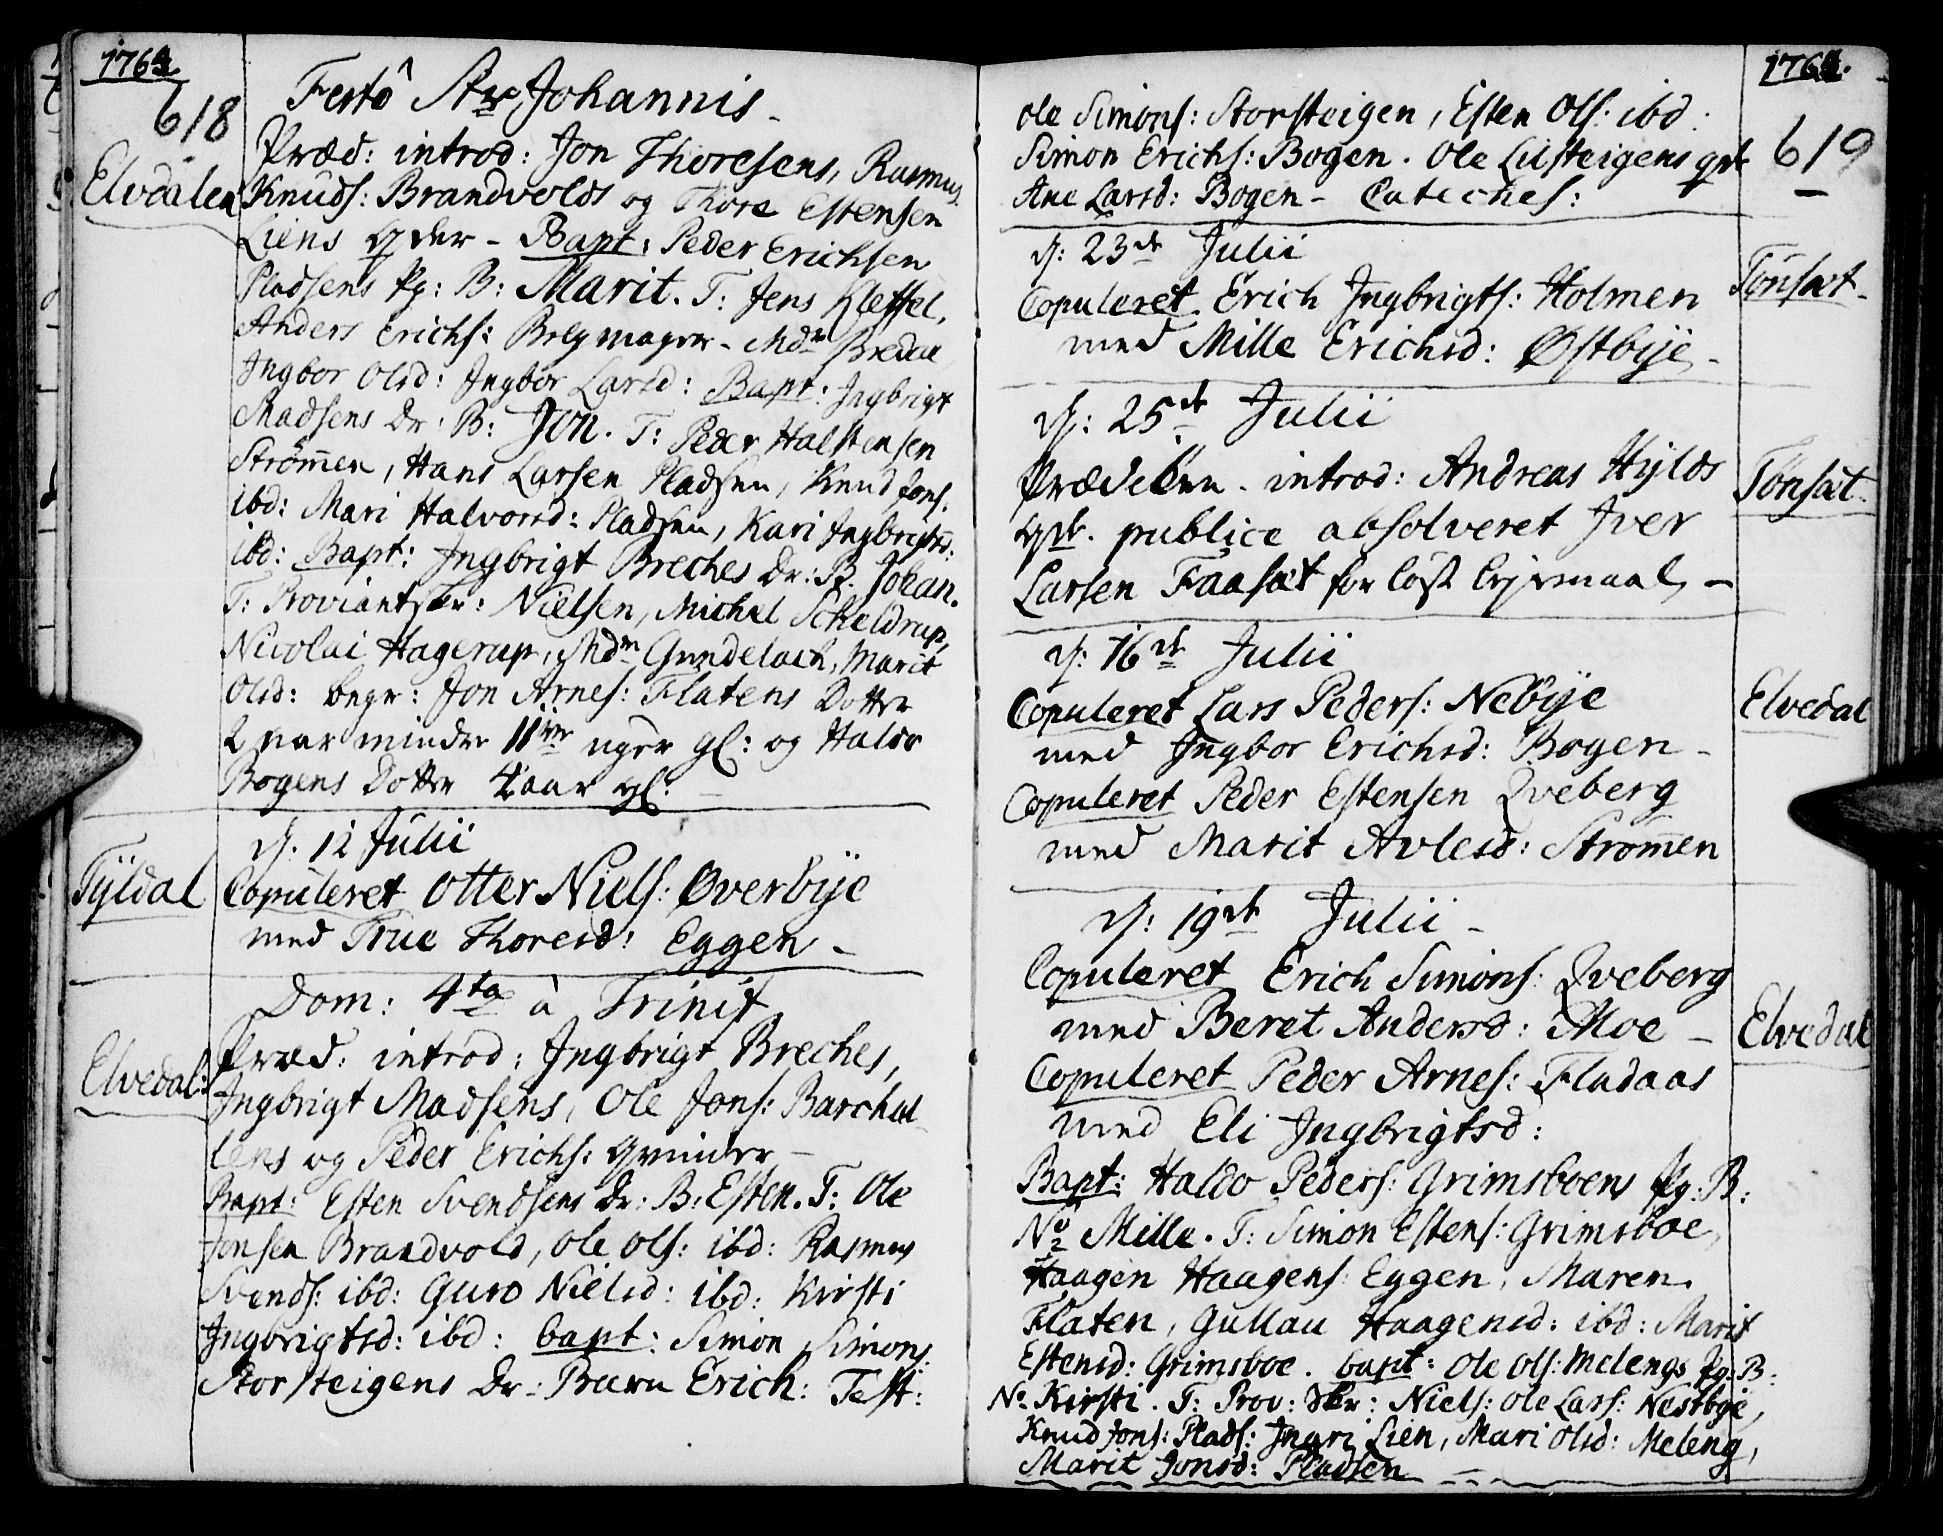 1764.
618
Festô Sti Johannis -
Elvdalen
Præd: introd: Jon Thoresens, Rasmus
Knuds: Brandvolds og Thore Estensen
Liens qvder - Bapt: Peder Erichsen
Pladsens Pg: B: Marit. T: Jens Kleffel,
Anders Erichs: - Mdm Bredal
Ingbor Olsd: Ingbor Larsd: Bapt: Ingbrigt
Madsens Dr: B: Jon. T: Peder Halstensen
Strømen, Hans Larsen Pladsen, Knud Jons:
ibd: Mari Halvorsd: Pladsen, Kari Ingbrigtsd:
ibd: Bapt: Ingbrigt Breches Dr: B. Johan.
T: Proviantskr: Nielsen, Michel Scheldrup,
Nicolai Hagerup, Mdm Gundelach, Marit
Olsd: begr: Jon Arnes: Flatens Dotter
2 aar mindre 11 uger gl: og Haldo
Bogens Dotter 4 aar gl:
d: 12 Julii
Tyldal
Copuleret Otter Niels: Øverbye
med True Thoresd: Eggen -
Dom: 4ta à Trinit
Elvedal:
Præd: introd: Ingbrigt Breches,
Ingbrigt Madsens, Ole Jons: Barchal
lens og Peder Erichs: qvinder -
Bapt: Esten Svendsens Dr: B: Esten. T: Ole
Jonsen Brandvold, Ole Ols: ibd: Rasmus
Svends: ibd: Guro Nielsd: ibd: Kirsti
Ingbrigtsd: ibd: bapt: Simon Simons:
Storsteigens Dr: Barn Erich: Test:
1764.
619
Ole Simons: Storsteigen, Esten Ols: ibd:
Simon Erichs: Bogen. Ole Lilsteigens
Ane Larsd: Bogen - Cateches:
d: 23de Julii
Tønsæt -
Copuleret Erich Ingbrigts: Holmen
med Mille Erichsd: Østbye -
d: 25de Julii
Tønsæt -
Prædiken - introd: Andreas Hylds
publice absolveret Iver
Larsen Faasæt for løst leyermaal -
d: 16de Julii
Elvedal
Copuleret Lars Peders: Nebye
med Ingbor Erichsd: Bogen -
Copuleret Peder Estensen Qveberg
med Marit Avlesd: Strømen
d: 19de Julii -
Elvedal
Copuleret Erich Simons: Qveberg
med Beret Andersd: Moe -
Copuleret Peder Arnes: Fladaas
med Eli Ingbrigtsd:
Bapt: Haldo Peders: Grimsboens Pg: B:
No 2 Mille. T: Simon Estens: Grimsboe,
Haagen Haagens: Eggen, Maren
Flaten, Gullau Haagensd: ibd: Marit
Estensd: Grimsboe. bapt: Ole Ols: Melengs Pg: B:
No Kirsti. T: Prov: Skr: Niels: Ole Lars: Nestbye,
Knud Jons: Plads: Ingri Lien, Mari Olsd: Meleng,
Marit Jonsd: Pladsen -